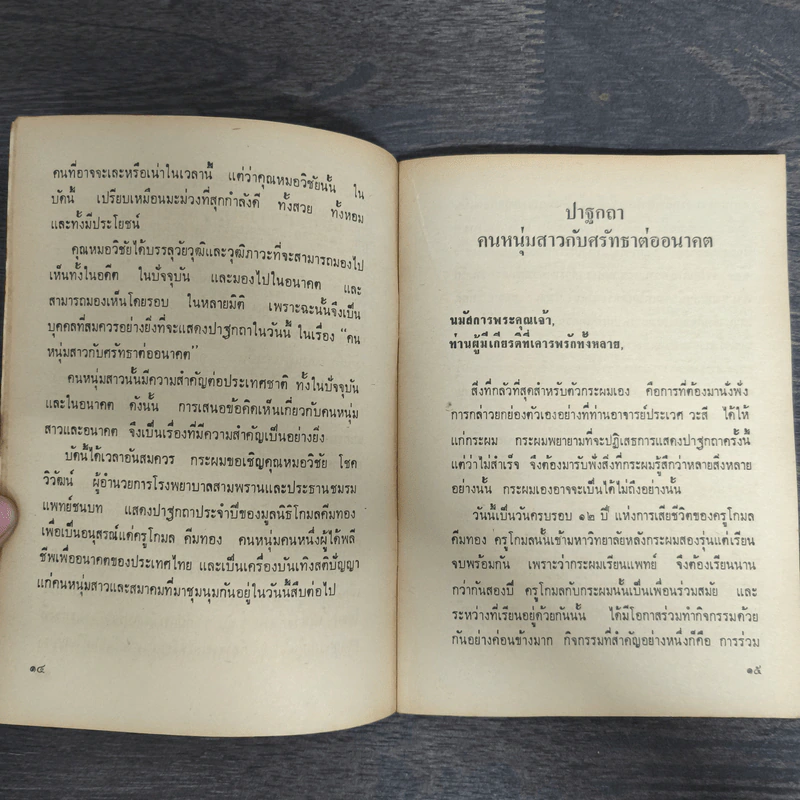 คนที่อาจจะเละหรือเน่าในเวลานี้ แต่ว่าคุณหมอวิชัยนั้น ใน
บัดนี้ เปรียบเหมือนมะม่วงที่สุกกำลังดี ทั้งสวย ทั้งหอม
และทั้งมีประโยชน์
คุณหมอวิชัยได้บรรลุวัยวุฒิและวุฒิภาวะที่จะสามารถมองไป
เห็นทั้งในอดีต ในปัจจุบัน และมองไปในอนาคต และ
สามารถมองเห็นโดยรอบ ในหลายมิติ เพราะฉะนั้นจึงเป็น
บุคคลที่สมควรอย่างยิ่งที่จะแสดงปาฐกถาในวันนี้ ในเรื่อง "คน
หนุ่มสาวกับศรัทธาต่ออนาคต"
คนหนุ่มสาวนั้นมีความสำคัญต่อประเทศชาติ ทั้งในปัจจุบัน
และในอนาคต ดังนั้น การเสนอข้อคิดเห็นเกี่ยวกับคนหนุ่ม
สาวและอนาคต จึงเป็นเรื่องที่มีความสำคัญเป็นอย่างยิ่ง
บัดนี้ได้เวลาอันสมควร กระผมขอเชิญคุณหมอวิชัย โชค
วิวัฒน์ ผู้อำนวยการโรงพยาบาลสามพรานและประธานชมรม
แพทย์ชนบท แสดงปาฐกถาประจำปีของมูลนิธิโกมลคีมทอง
เพื่อเป็นอนุสรณ์แด่ครูโกมล คีมทอง คนหนุ่มคนหนึ่งผู้ได้พลี
ชีพเพื่ออนาคตของประเทศไทย และเป็นเครื่องบันเทิงสติปัญญา
แก่คนหนุ่มสาวและสมาคมที่มาชุมนุมกันอยู่ในวันนี้สืบต่อไป
๑๔
ปาฐกถา
คนหนุ่มสาวกับศรัทธาต่ออนาคต
นมัสการพระคุณเจ้า,
ท่านผู้มีเกียรติที่เคารพรักทั้งหลาย,
สิ่งที่กลัวที่สุดสำหรับตัวกระผมเอง คือการที่ต้องมานั่งฟัง
การกล่าวยกย่องตัวเองอย่างที่ท่านอาจารย์ประเวศ วะสี ได้ให้
แก่กระผม กระผมพยายามที่จะปฏิเสธการแสดงปาฐกถาครั้งนี้
แต่ว่าไม่สำเร็จ จึงต้องมารับฟังสิ่งที่กระผมรู้สึกว่าหลายสิ่งหลาย
อย่างนั้น กระผมเองอาจจะเป็นได้ไม่ถึงอย่างนั้น
วันนี้เป็นวันครบรอบ ๑๒ ปี แห่งการเสียชีวิตของครูโกมล
คีมทอง ครูโกมลนั้นเข้ามหาวิทยาลัยหลังกระผมสองรุ่นแต่เรียน
จบพร้อมกัน เพราะว่ากระผมเรียนแพทย์ จึงต้องเรียนนาน
กว่ากันสองปี ครูโกมลกับกระผมนั้นเป็นเพื่อนร่วมสมัย และ
ระหว่างที่เรียนอยู่ด้วยกันนั้น ได้มีโอกาสร่วมทำกิจกรรมด้วย
กันอย่างค่อนข้างมาก กิจกรรมที่สำคัญอย่างหนึ่งก็คือ การร่วม
๑๕